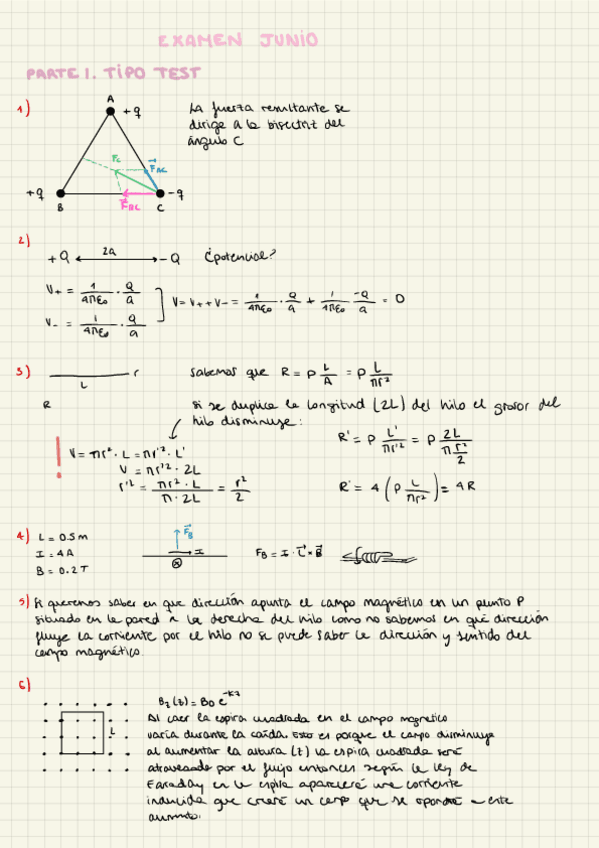 EXAMEN JUNIO
PARTE 1. TIPO TEST
1)
A
+q
La fuerza resultante se
dirige a la bisectriz del
ángulo C
Fc
F⃗AC
+q
-q
B
F⃗BC
C
2)
+Q 2a -Q ¿potencial?
V+ = 1/4πε₀ · Q/a
V- = 1/4πε₀ · Q/a
V = V+ + V- = 1/4πε₀ · Q/a + 1/4πε₀ · -Q/a = 0
3)
r
L
R
Sabemos que R = ρ L/A = ρ L/πr²
Si se duplica la longitud (2L) del hilo el grosor del
hilo disminuye:
! V = πr² · L = πr'² · L'
V = πr'² · 2L
r'² = πr² · L / π · 2L = r²/2
R' = ρ L'/πr'² = ρ 2L/π r²/2
R' = 4 (ρ L/πr²) = 4R
4) L = 0.5m
I = 4A
B = 0.2T
F⃗B
I
FB = I · L⃗ × B⃗
5) Si queremos saber en que dirección apunta el campo magnético en un punto P
situado en la pared a la derecha del hilo como no sabemos en qué dirección
fluye la corriente por el hilo no se puede saber la dirección y sentido del
campo magnético.
6)
L
Bz(z) = B0 e^-kz
Al caer la espira cuadrada en el campo magnetico
varía durante la caída. Esto es porque el campo disminuye
al aumentar la altura (z) la espira cuadrada será
atravesada por el flujo entonces según la ley de
Faraday en la espira aparecerá una corriente
inducida que creará un campo que se opondrá a este
aumento.